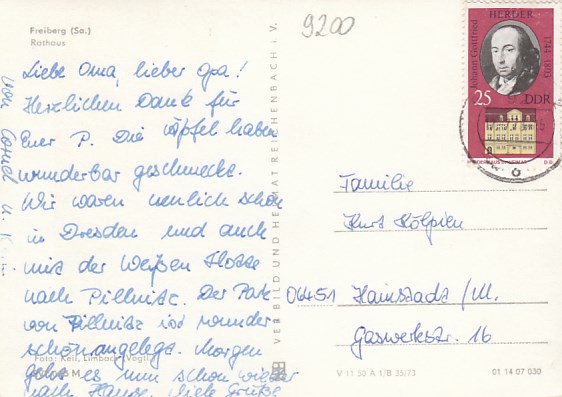 Freiberg (Sa.)
Rathaus
9200
Liebe Oma, lieber Opa!
Herzlichen Dank für
Euer P. Die Äpfel haben
wunderbar geschmeckt.
Wir waren neulich schon
in Dresden und auch
mit der Weißen Flotte
nach Pillnitz. Der Park
von Pillnitz ist wunder
schön angelegt. Morgen
geht es nun schon wieder
nach Hause. Viele Grüße
von
Foto: Keil, Limbach (Vogtl.)
VEB BILD UND HEIMAT REICHENBACH I. V.
Johann Gottfried
HERDER
1744-1803
25
DDR
Familie
Kurt Kölpien
06451 Hainstadt/M.
Gaswerkstr. 16
V 11 50 A 1/B 35/73
01 14 07 030